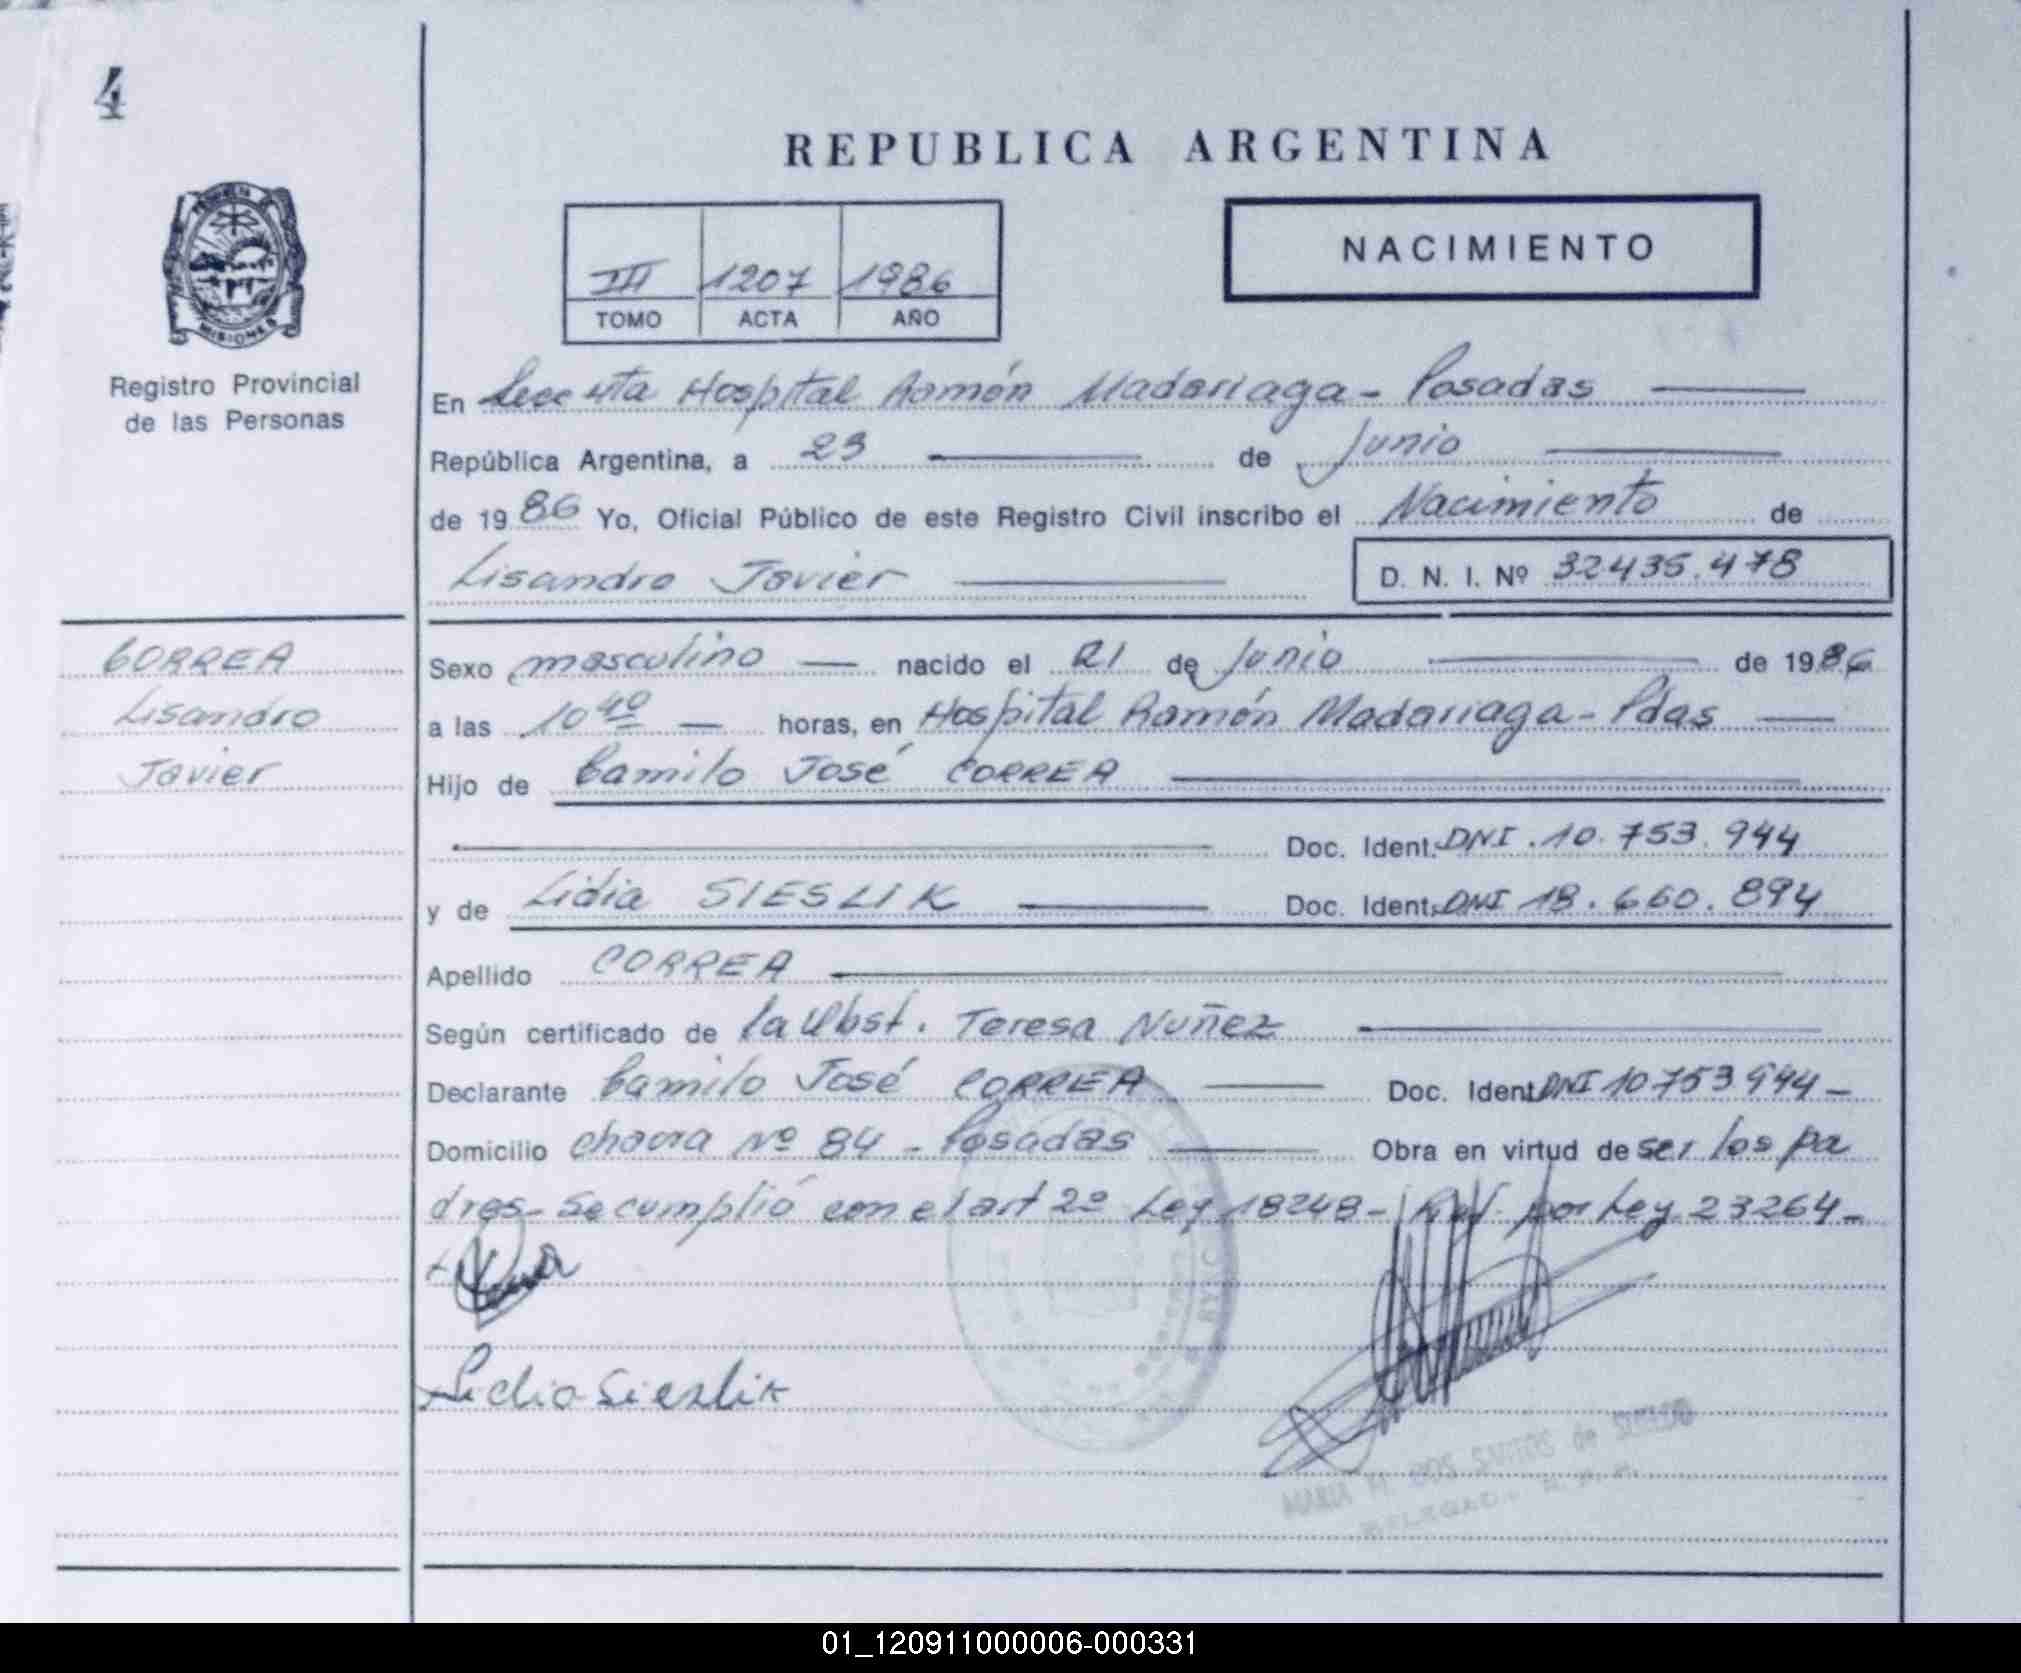 4
REPUBLICA ARGENTINA
NACIMIENTO
III 1207 1986
TOMO ACTA AÑO
MISIONES
Registro Provincial
de las Personas
En Secc 4ta Hospital Ramón Madariaga - Posadas
República Argentina, a 23 de Junio
de 1986 Yo, Oficial Público de este Registro Civil inscribo el Nacimiento de
Lisandro Javier D. N. I. Nº 32435.478
CORREA
Lisandro
Javier
Sexo masculino nacido el 21 de Junio de 1986
a las 10 40 horas, en Hospital Ramón Madariaga - Pdas
Hijo de Camilo José CORREA
Doc. Ident. DNI. 10.753.944
y de Lidia SIESLIK Doc. Ident. DNI 18.660.894
Apellido CORREA
Según certificado de la Obst. Teresa Nuñez
Declarante Camilo José CORREA Doc. Ident. DNI 10753944 -
Domicilio chacra Nº 84 - Posadas Obra en virtud de ser los pa
dres - Se cumplió con el art 2º Ley 18248 - por Ley 23264 -
Lidia Sieslik
MARIA M. DOS SANTOS de
01_120911000006-000331